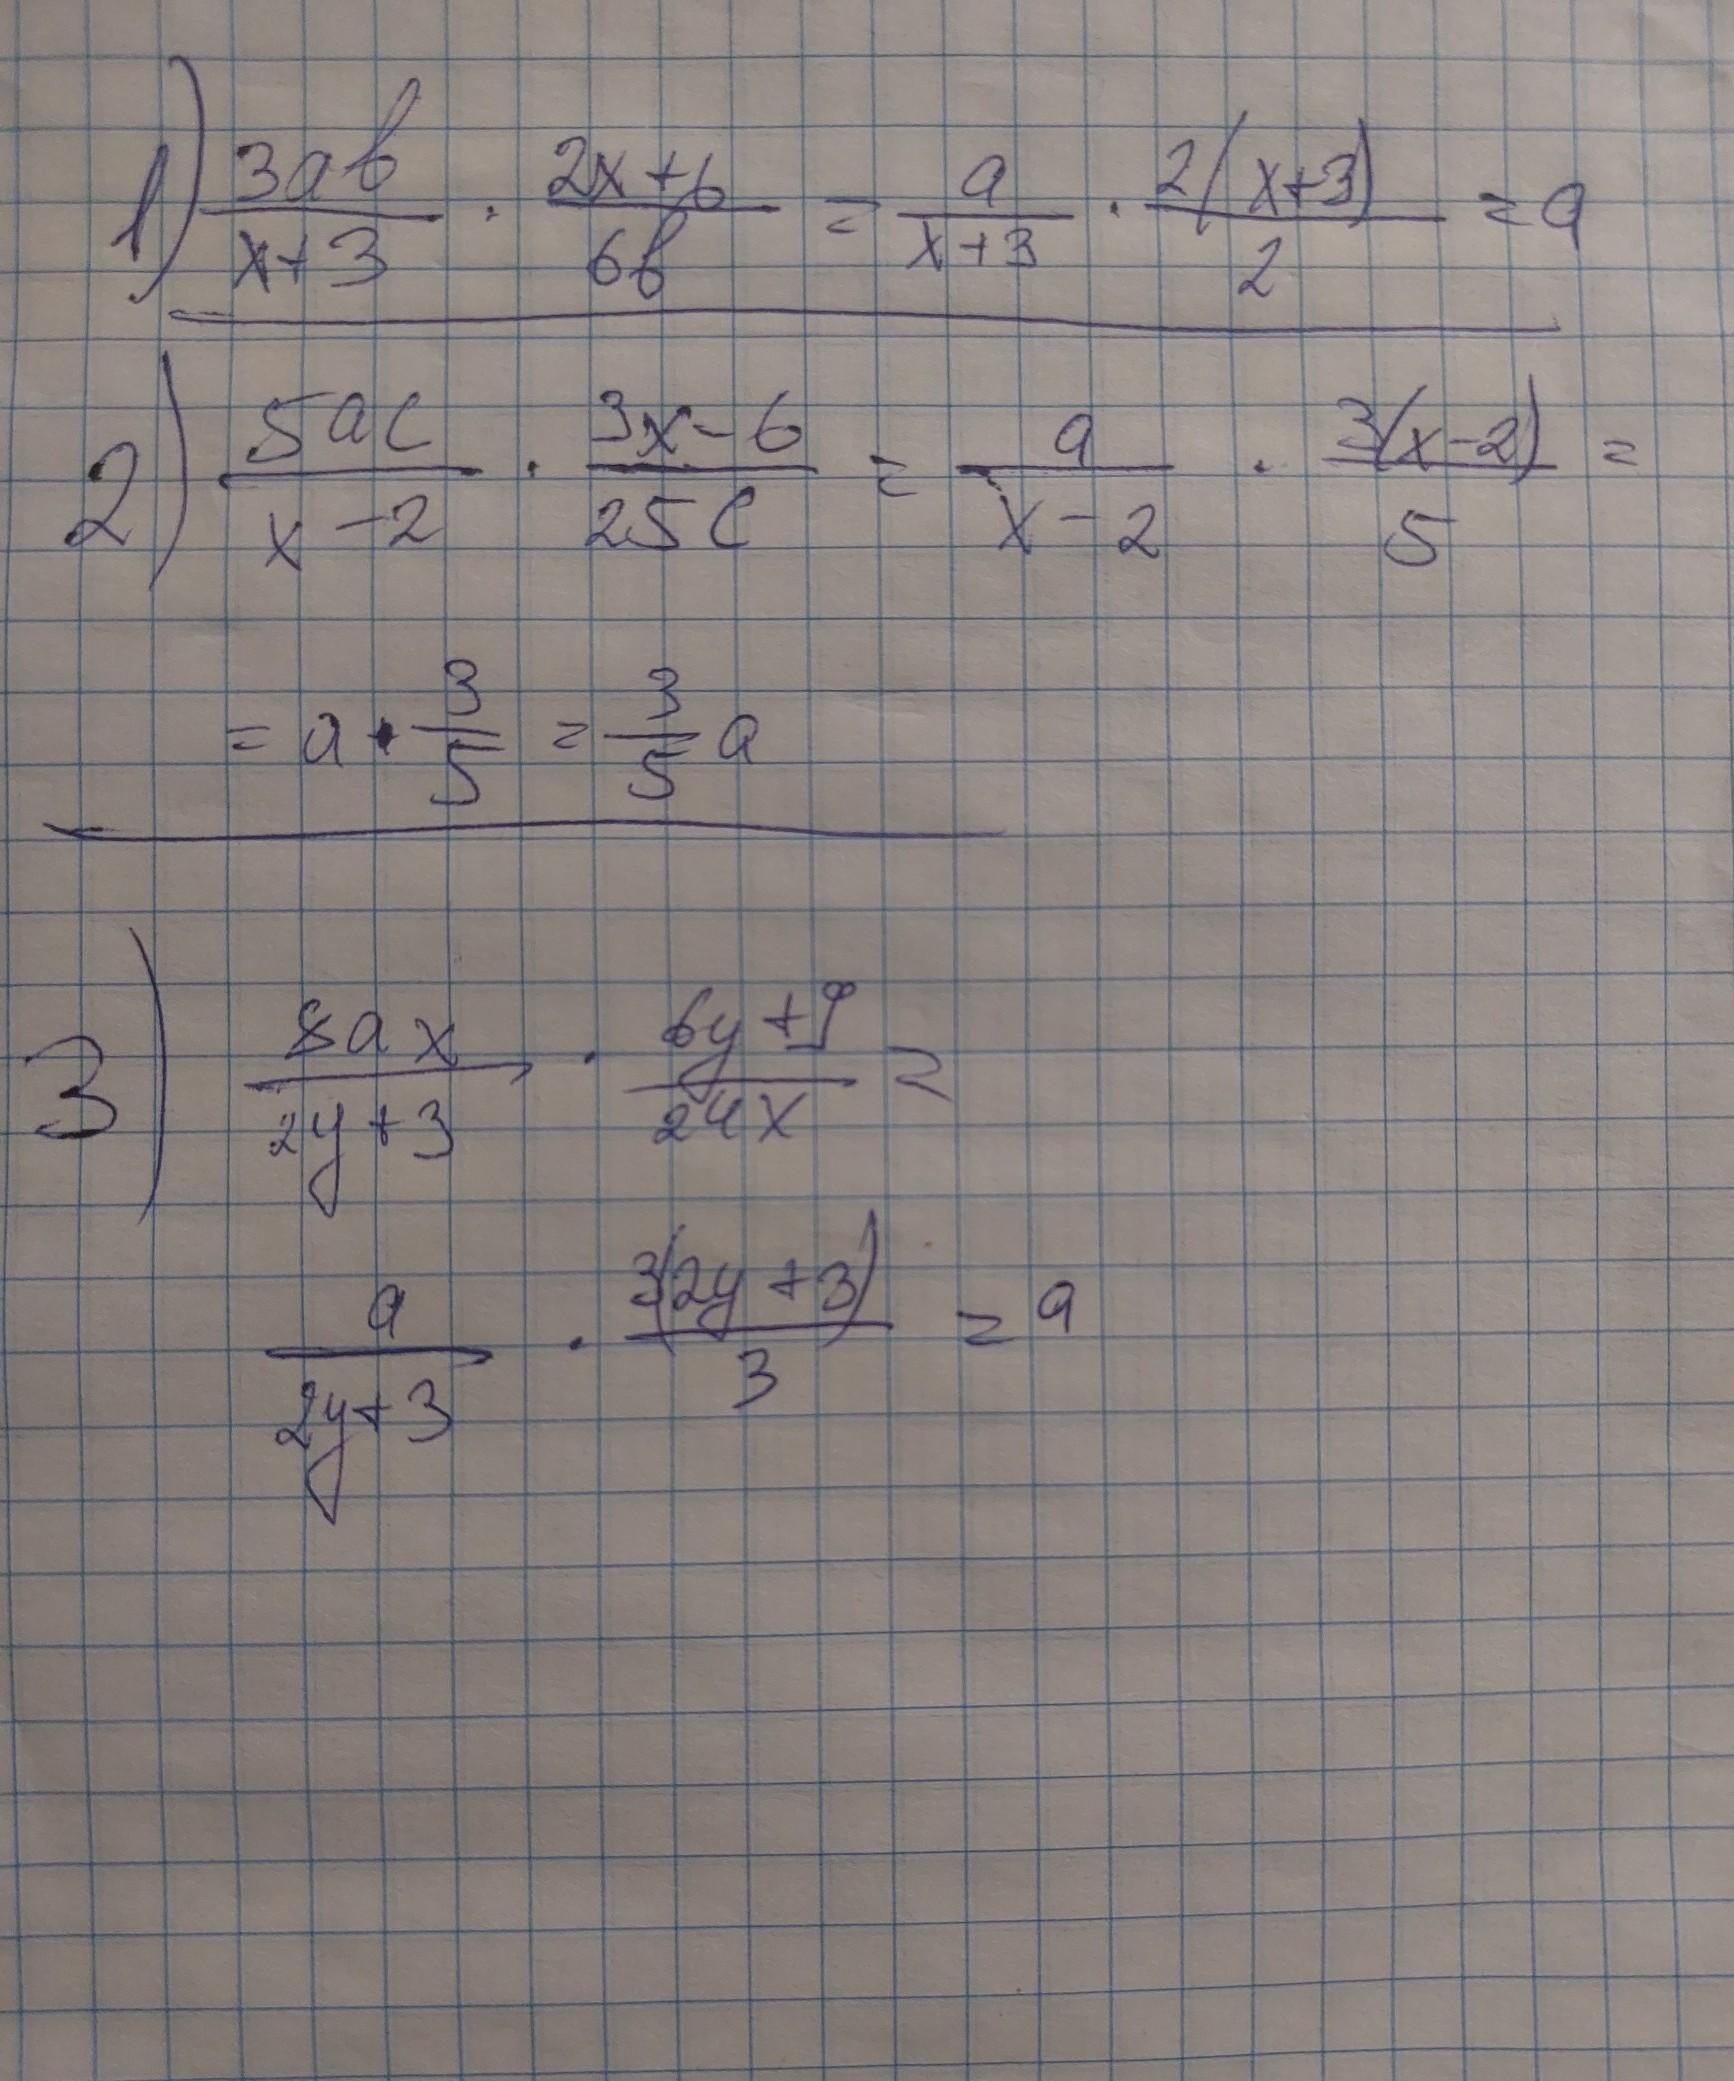 1) 3ab/(x+3) · (2x+6)/(6b) = a/(x+3) · 2(x+3)/2 = a
2) 5ac/(x-2) · (3x-6)/(25c) = a/(x-2) · 3(x-2)/5 =
= a · 3/5 = 3/5 a
3) 8ax/(2y+3) · (6y+9)/(24x) =
a/(2y+3) · 3(2y+3)/3 = a